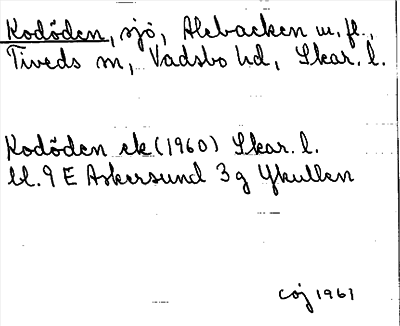 Kodöden, sjö, Alebacken m. fl.,
Tiveds sn, Vadsbo hd, Skar. l.
Kodöden ek (1960) Skar. l.
bl. 9 E Askersund 3 g Ykullen
COJ 1961